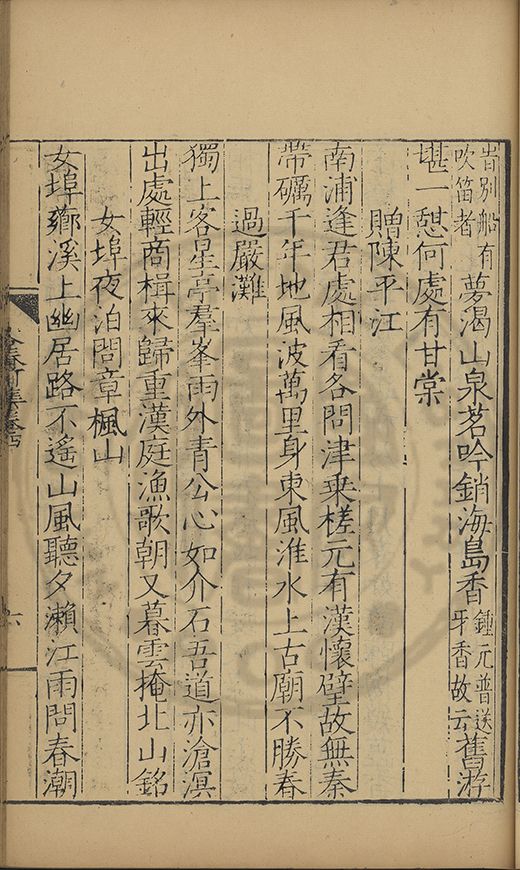 昔別船有
吹笛者
夢渴山泉茗吟銷海島香
鍾元普送
牙香故云
舊游
堪一憇何處有甘棠
贈陳平江
南浦逢君處相看各問津乗槎元有漢懷璧故無秦
帶礪千年地風波萬里身東風淮水上古廟不勝春
過嚴灘
獨上客星亭羣峯雨外青公心如介石吾道亦滄溟
出處輕商楫來歸重漢庭漁歌朝又暮雲掩北山銘
女埠夜泊問章楓山
女埠薌溪上幽居路不遙山風聽夕瀨江雨問春潮
六